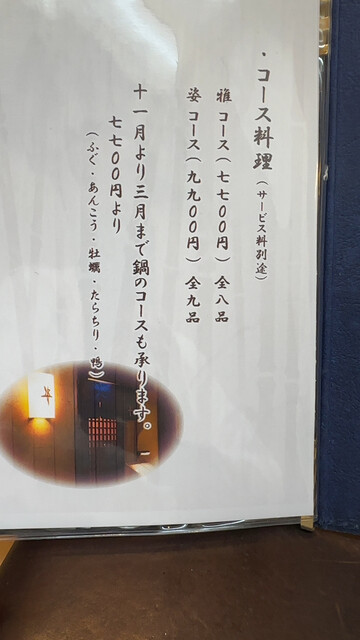 ・コース料理（サービス料別途）
雅コース（七七００円）全八品
姿コース（九九００円）全九品
十一月より三月まで鍋のコースも承ります。
七七００円より
（ふぐ・あんこう・牡蠣・たらちり・鴨）